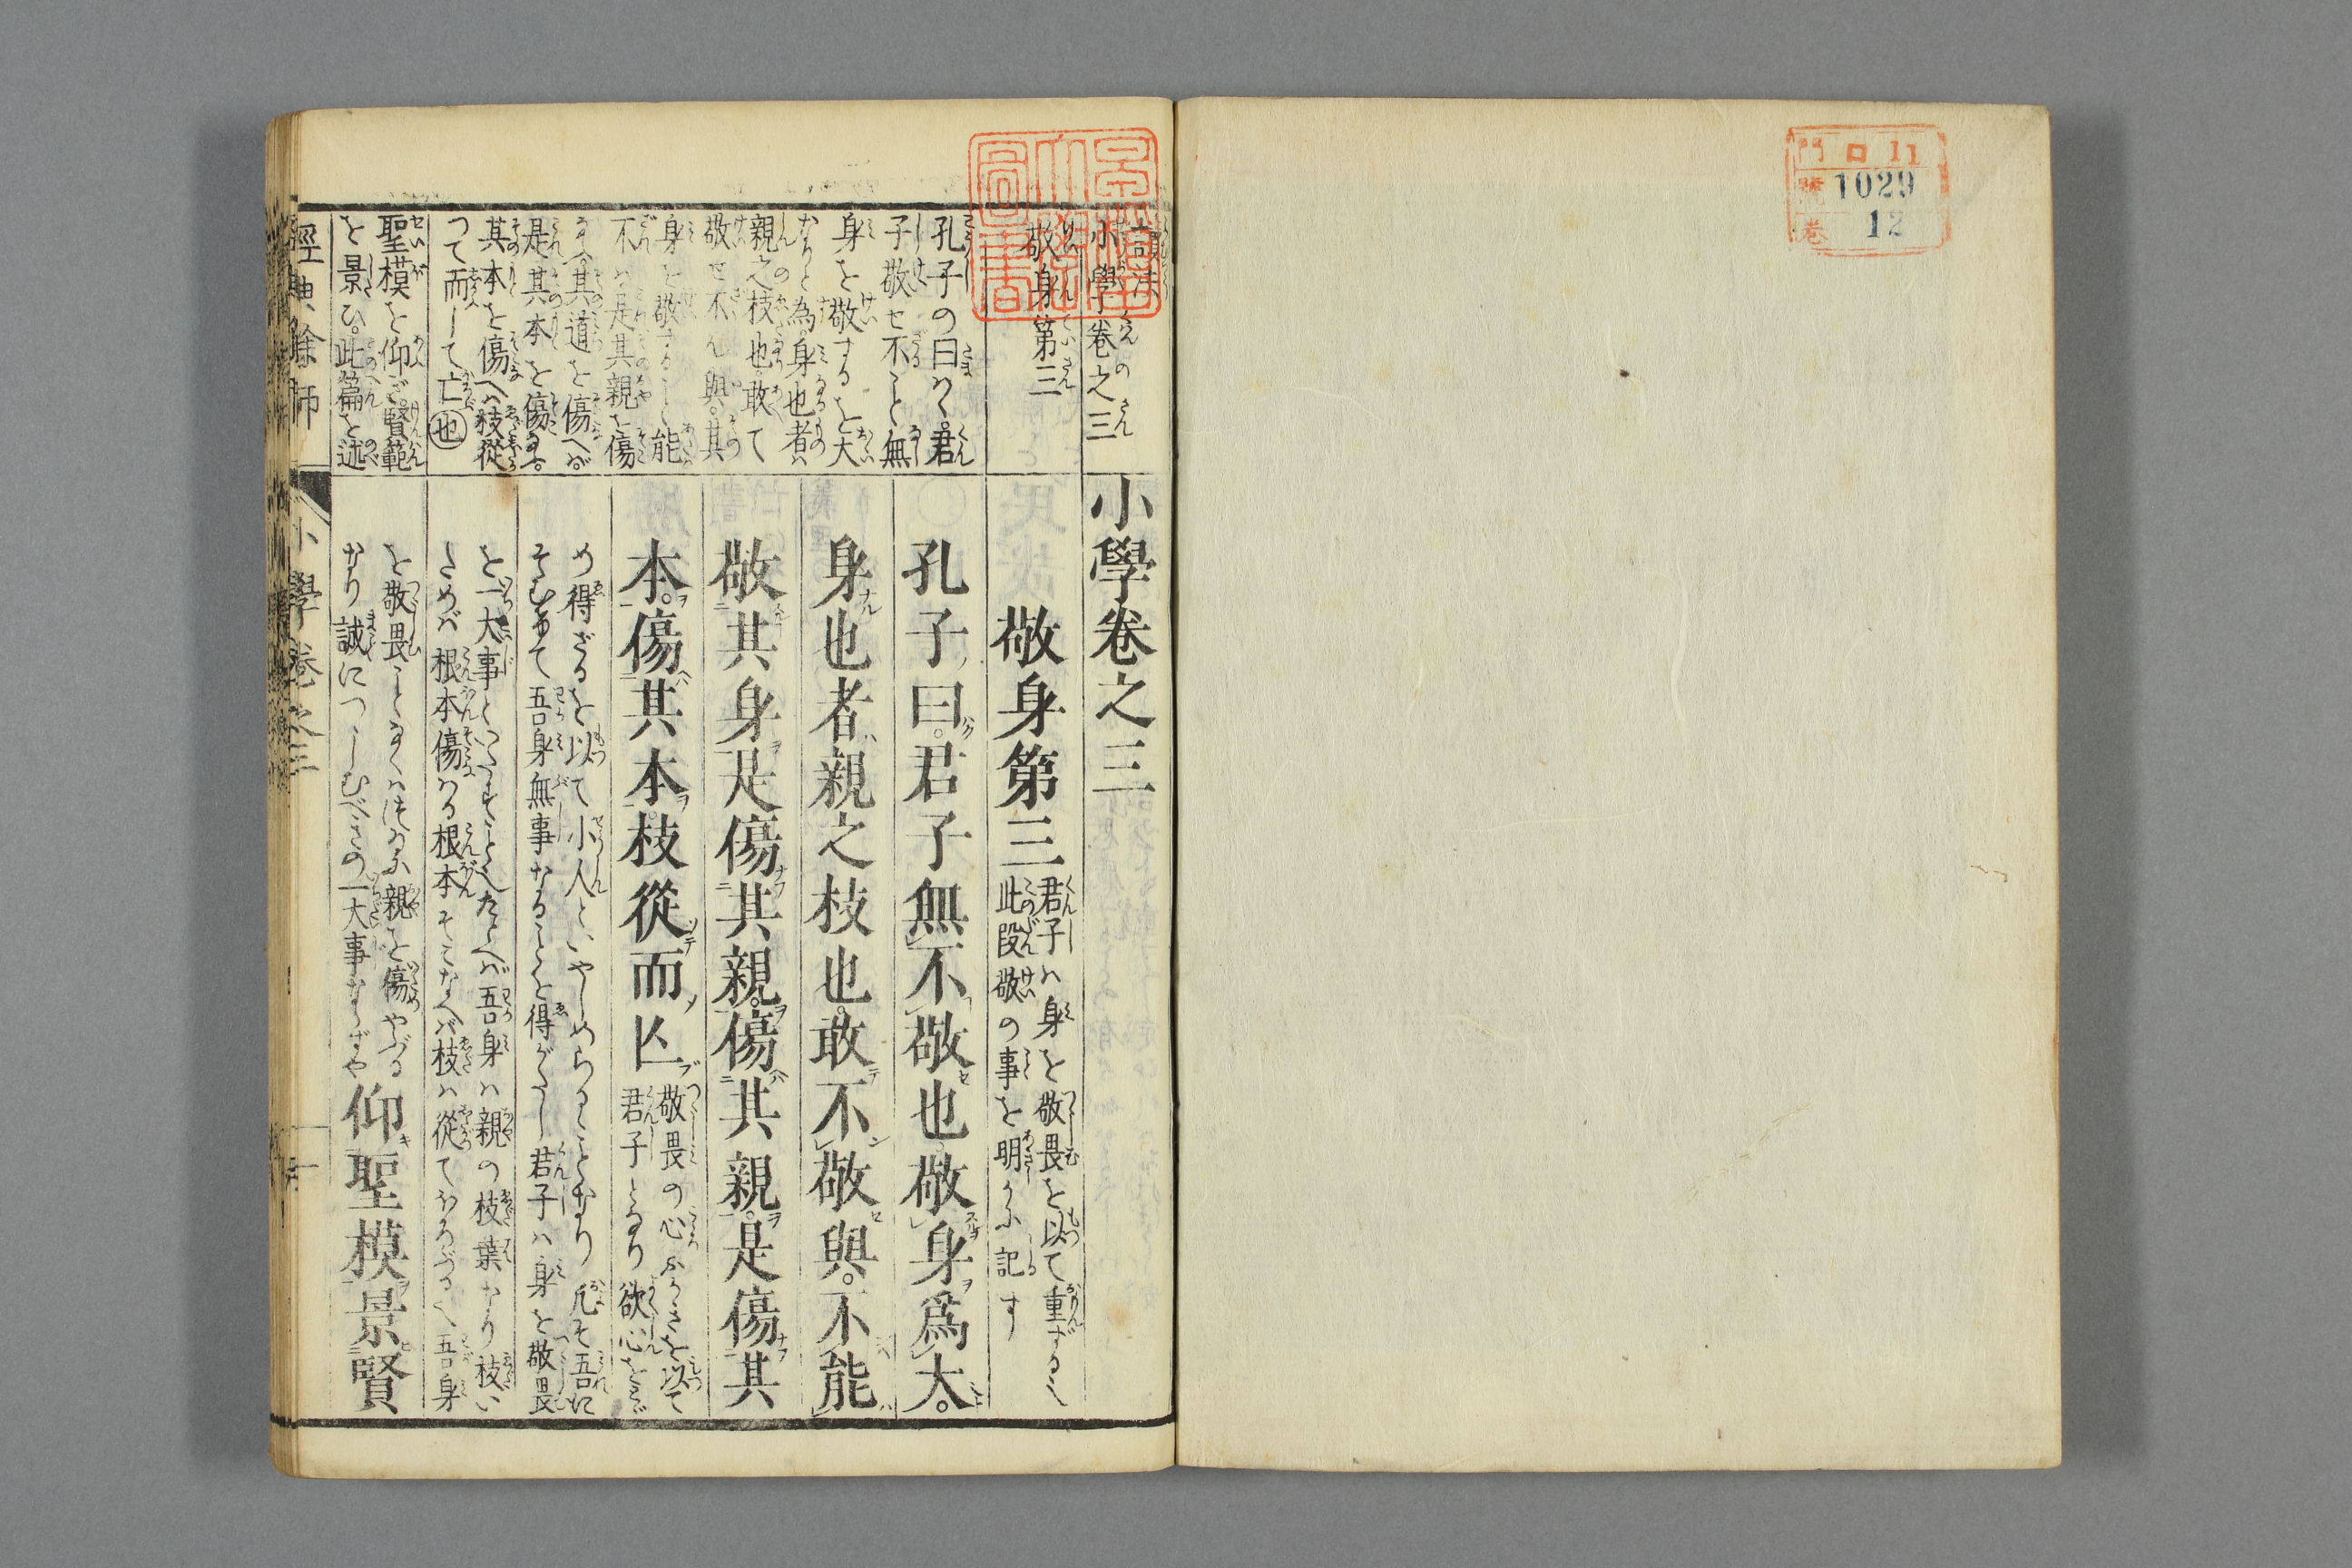 門 ロ 11
號 1029
卷 12
早稲田大學圖書
讀法
小學卷之三
敬身第三
孔子の曰く。君
子敬せ不こと無
身を敬するを大
なりと為。身也者ハ
親之枝也。敢て
敬せ不ん與。其
身を敬すること能
不ハ是其親を傷
其道を傷へバ。
是其本を傷る。
其本を傷へハ枝從
つて而して亡㊉也
聖模を仰ぎ。賢範
を景ひ。此篇を述
小學卷之三
敬身第三
君子ハ身を敬畏を以て重ずる〻
此段敬の事を明らかに記す
孔子曰。君子無不敬也敬身爲大。
身也者親之枝也。敢不敬與。不能
敬其身是傷其親。傷其親。是傷其
本。傷其本枝從而亾
敬畏の心ふかきを以て
君子となり欲心をとゞ
め得ざるを以て小人といやしめらるゝことなり凡そ吾に
そむきて吾身無事なることを得がたし君子ハ身を敬畏
を一大事といたすことたとへバ吾身ハ親の枝葉なり枝い
ためバ根本傷はる根本そこなへバ枝ハ從てほろぶる〻吾身
を敬畏ことなくハ汝ならふ親を傷やぶる
なり誠につゝしむべきの一大事ならずや
仰聖模景賢
經典餘師
小學卷之三